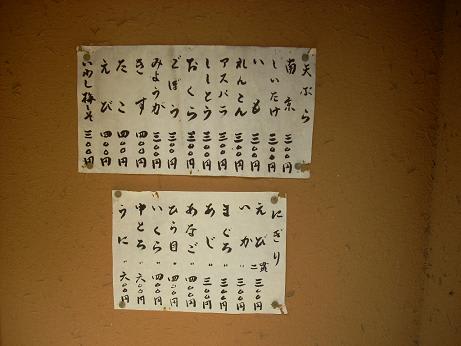 天ぷら
南京 三〇〇円
しいたけ 三〇〇円
いも 三〇〇円
れんこん 三〇〇円
アスパラ 三〇〇円
ししとう 三〇〇円
おくら 三〇〇円
ごぼう 三〇〇円
みようが 三〇〇円
きす 四〇〇円
たこ 四〇〇円
えび 四〇〇円
いわし梅しそ 三〇〇円
にぎり
えび 二貫 三〇〇円
いか 〃 三〇〇円
まぐろ 〃 三〇〇円
あじ 〃 三〇〇円
あなご 〃 四〇〇円
ひら目 〃 四〇〇円
いくら 〃 四〇〇円
中とろ 〃 六〇〇円
うに 〃 六〇〇円